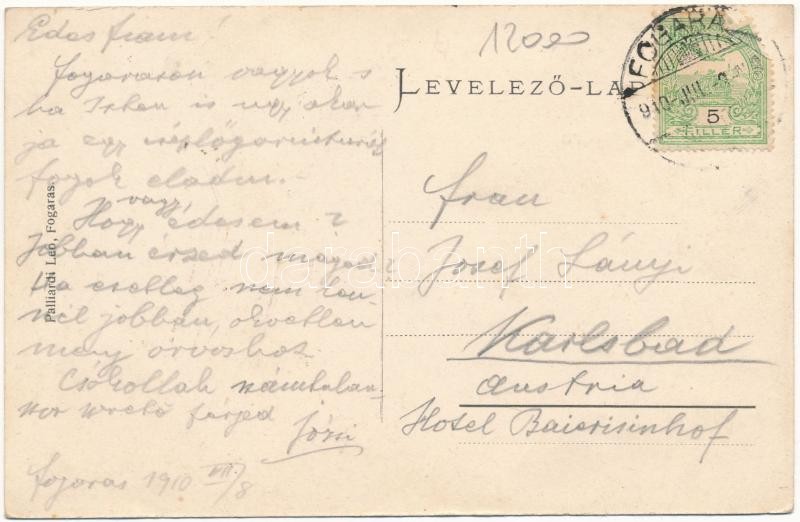 Édes fiam!
Fogarason vagyok s
ha Isten is úgy akar
ja egy cséplőgarniturát
fogok eladni.-
Hogy vagy édesem?
Jobban érzed magad?
Ha esetleg nem len
nél jobban, okvetlen
menj orvoshoz.
Csókollak számtalan-
szor szerető férjed
Józsi
Fogaras 1910 VII/8
Palliardi Leó, Fogaras.
12000
LEVELEZŐ-LAP
FOGARAS
910 JUL.
5
FILLÉR
Frau
Josef Lányi
Karlsbad
Austria
Hotel Baierisinhof
darabanth